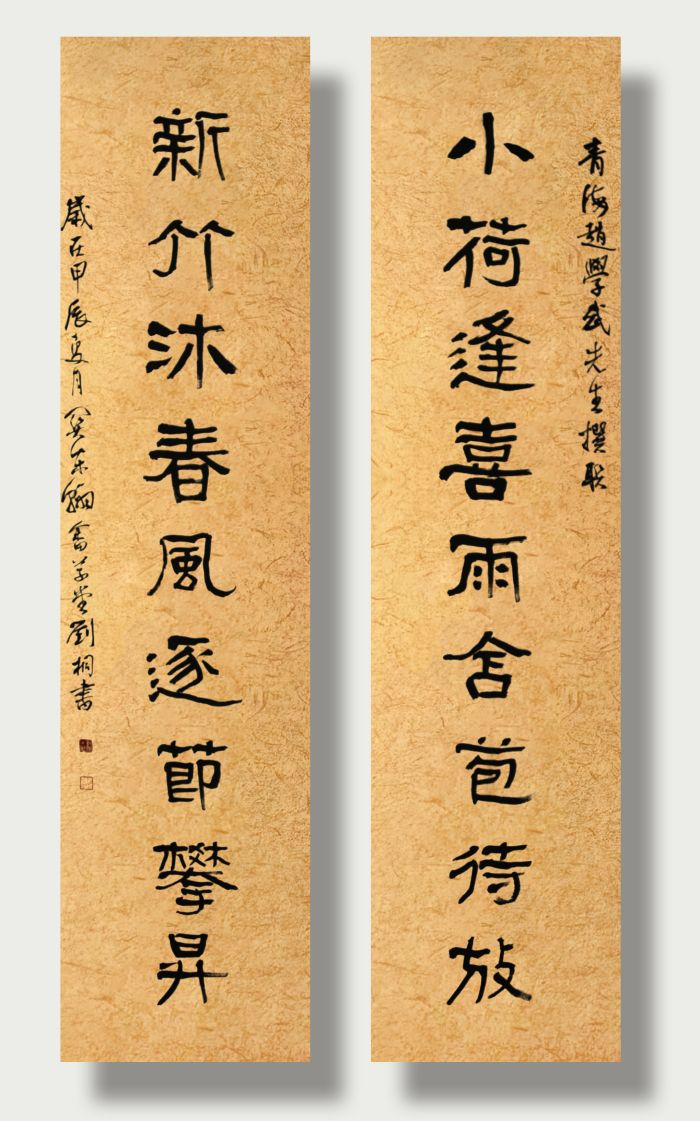 青海趙學武先生撰联
小荷逢喜雨含苞待放
新竹沐春風逐節攀昇
歲在甲辰夏月冀东翰堂劉桐書